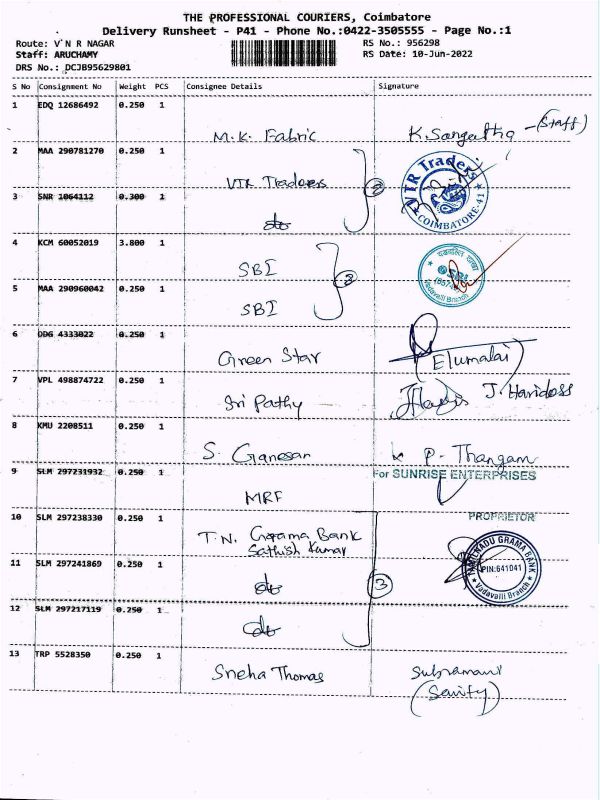 THE PROFESSIONAL COURIERS, Coimbatore
Delivery Runsheet - P41 - Phone No.:0422-3505555 - Page No.:1
Route: V N R NAGAR RS No.: 956298
Staff: ARUCHAMY RS Date: 10-Jun-2022
DRS No.: DCJB95629801
S No Consignment No Weight PCS Consignee Details Signature
1 EDQ 12686492 0.250 1
M.K. Fabric K. Sangeetha - (Staff)
2 MAA 290781270 0.250 1
VTR Traders
VTR Traders
COIMBATORE-41
3 SNR 1064112 0.300 1
do
2
4 KCM 60052019 3.800 1
SBI
SBI
Vadavalli Branch
5 MAA 290960042 0.250 1
SBI
2
6 DDG 4333022 0.250 1
Green Star (Elumalai)
7 VPL 498874722 0.250 1
Sri Pathy J. Haridoss
8 KMU 2208511 0.250 1
S. Ganesan P. Thangam
9 SLM 297231932 0.250 1
For SUNRISE ENTERPRISES
MRF
PROPRIETOR
10 SLM 297238330 0.250 1
T.N. Grama Bank
Sathish Kumar
TAMILNADU GRAMA BANK
PIN:641041
Vadavalli Branch
11 SLM 297241869 0.250 1
do
3
12 SLM 297217119 0.250 1
do
13 TRP 5528350 0.250 1
Sneha Thomas Subramani